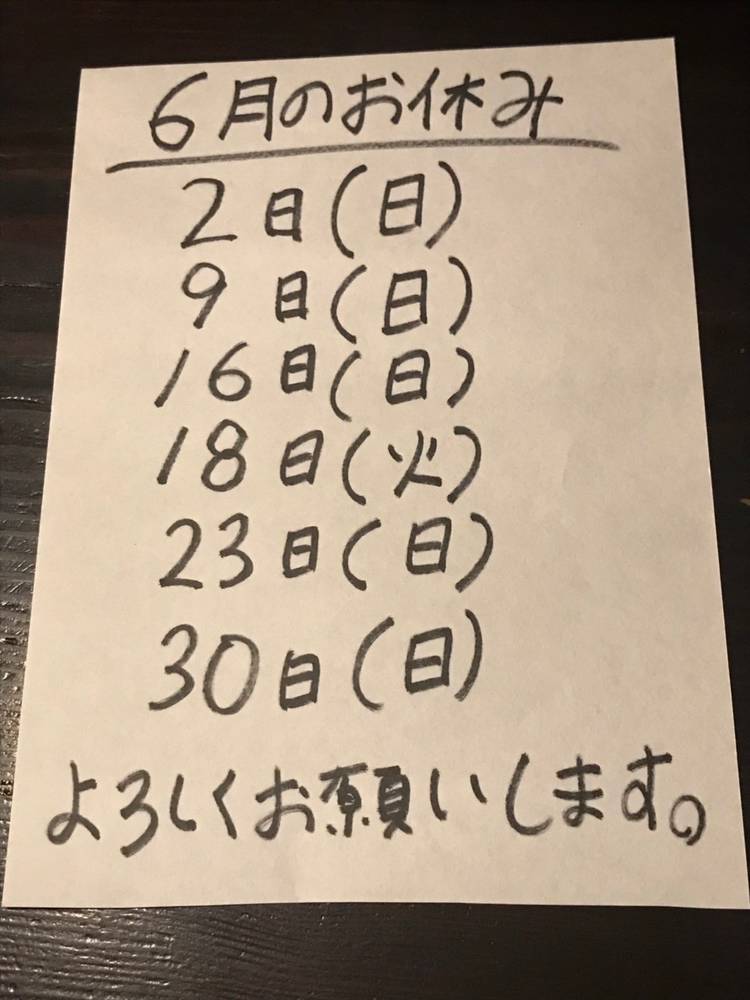 6月のお休み
2日(日)
9日(日)
16日(日)
18日(火)
23日(日)
30日(日)
よろしくお願いします。